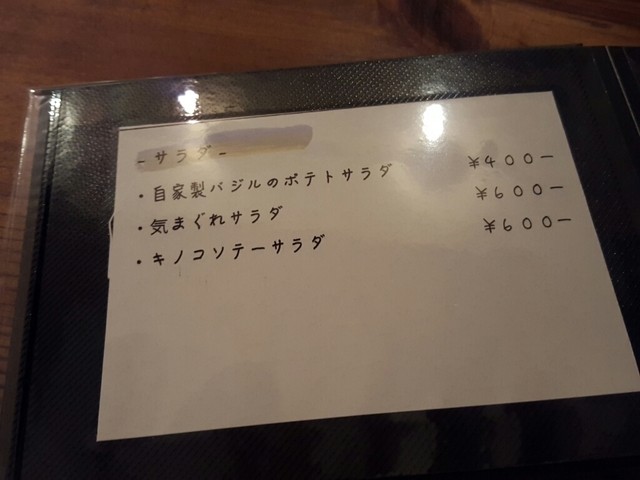 - サラダ -
・自家製バジルのポテトサラダ ¥400ー
・気まぐれサラダ ¥600ー
・キノコソテーサラダ ¥600ー